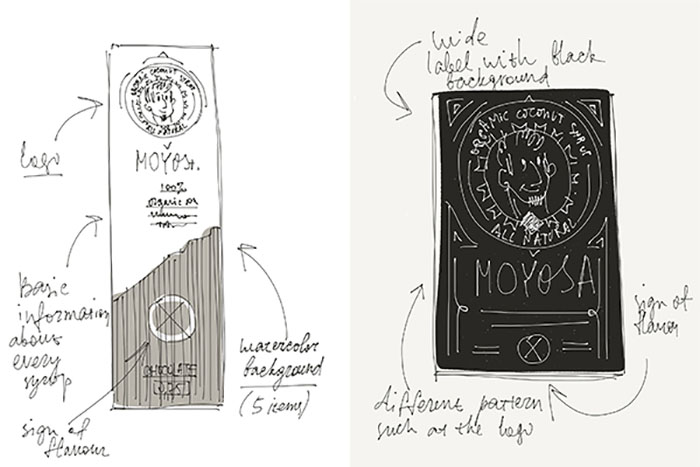 ORGANIC COCONUT SYRUP
ALL NATURAL
MOYOSA.
100%
organic
logo
Basic
information
about
every
syrop
sign of
flavour
CHOCOLATE
watercolor
background
(5 items)
wide
label with black
background
ORGANIC COCONUT SYRUP
ALL NATURAL
MOYOSA
sign of
flavor
different pattern
such as the logo